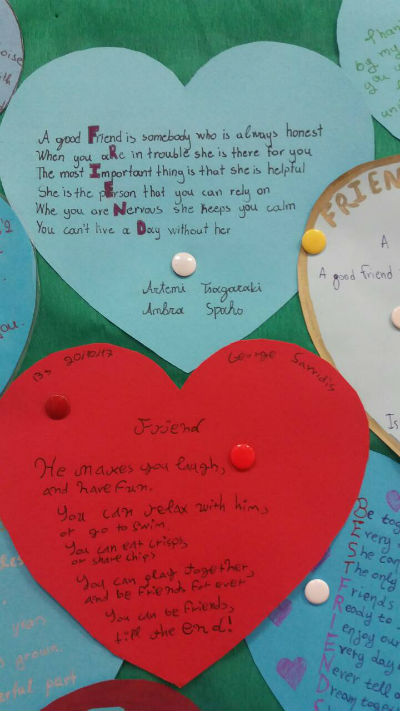 A good Friend is somebody who is always honest
When you aRe in trouble she is there for you
The most Important thing is that she is helpful
She is the pErson that you can rely on
Whe you are Nervous she keeps you calm
You can't live a Day without her
Artemi Tsagaraki
Ambra Spaho
B3 20/10/17
George Savvidis
Friend
He makes you laugh,
and have fun.
You can relax with him,
or go to swim.
You can eat crisps,
or share chips
You can play together,
and be friends for ever
You can be friends,
till the end!
FRIEN
A
A good friend
Is
Be tog
Every
She can
The only
Friends
Ready to
I enjoy our
Every day
Never tell a
Dream toge
S
by my
you
you.
years
grown
part